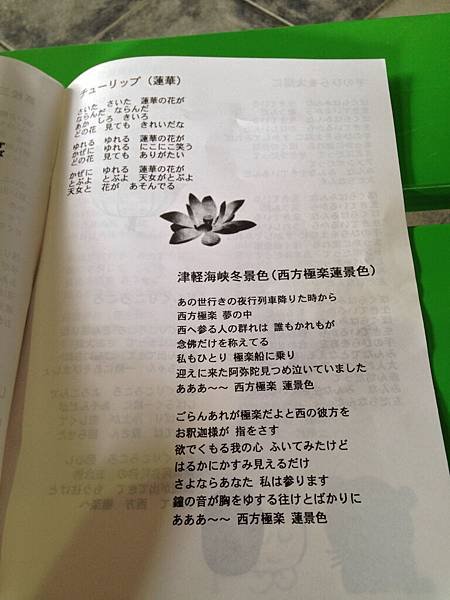 チューリップ（蓮華）
さいた　さいた　蓮華の花が
ならんだ　ならんだ
あか　しろ　きいろ
どの花　見ても　きれいだな
ゆれる　ゆれる　蓮華の花が
かぜに　ゆれる　にこにこ笑う
どの花　見ても　ありがたい
かぜに　ゆれる　蓮華の花が
とぶよ　とぶよ　天女がとぶよ
天女と　花が　あそんでる
津軽海峡冬景色（西方極楽蓮景色）
あの世行きの夜行列車降りた時から
西方極楽 夢の中
西へ参る人の群れは 誰もかれもが
念佛だけを称えてる
私もひとり 極楽船に乗り
迎えに来た阿弥陀見つめ泣いていました
あああ〜〜 西方極楽 蓮景色
ごらんあれが極楽だよと西の彼方を
お釈迦様が 指をさす
欲でくもる我の心 ふいてみたけど
はるかにかすみ見えるだけ
さよならあなた 私は参ります
鐘の音が胸をゆする往けとばかりに
あああ〜〜 西方極楽 蓮景色